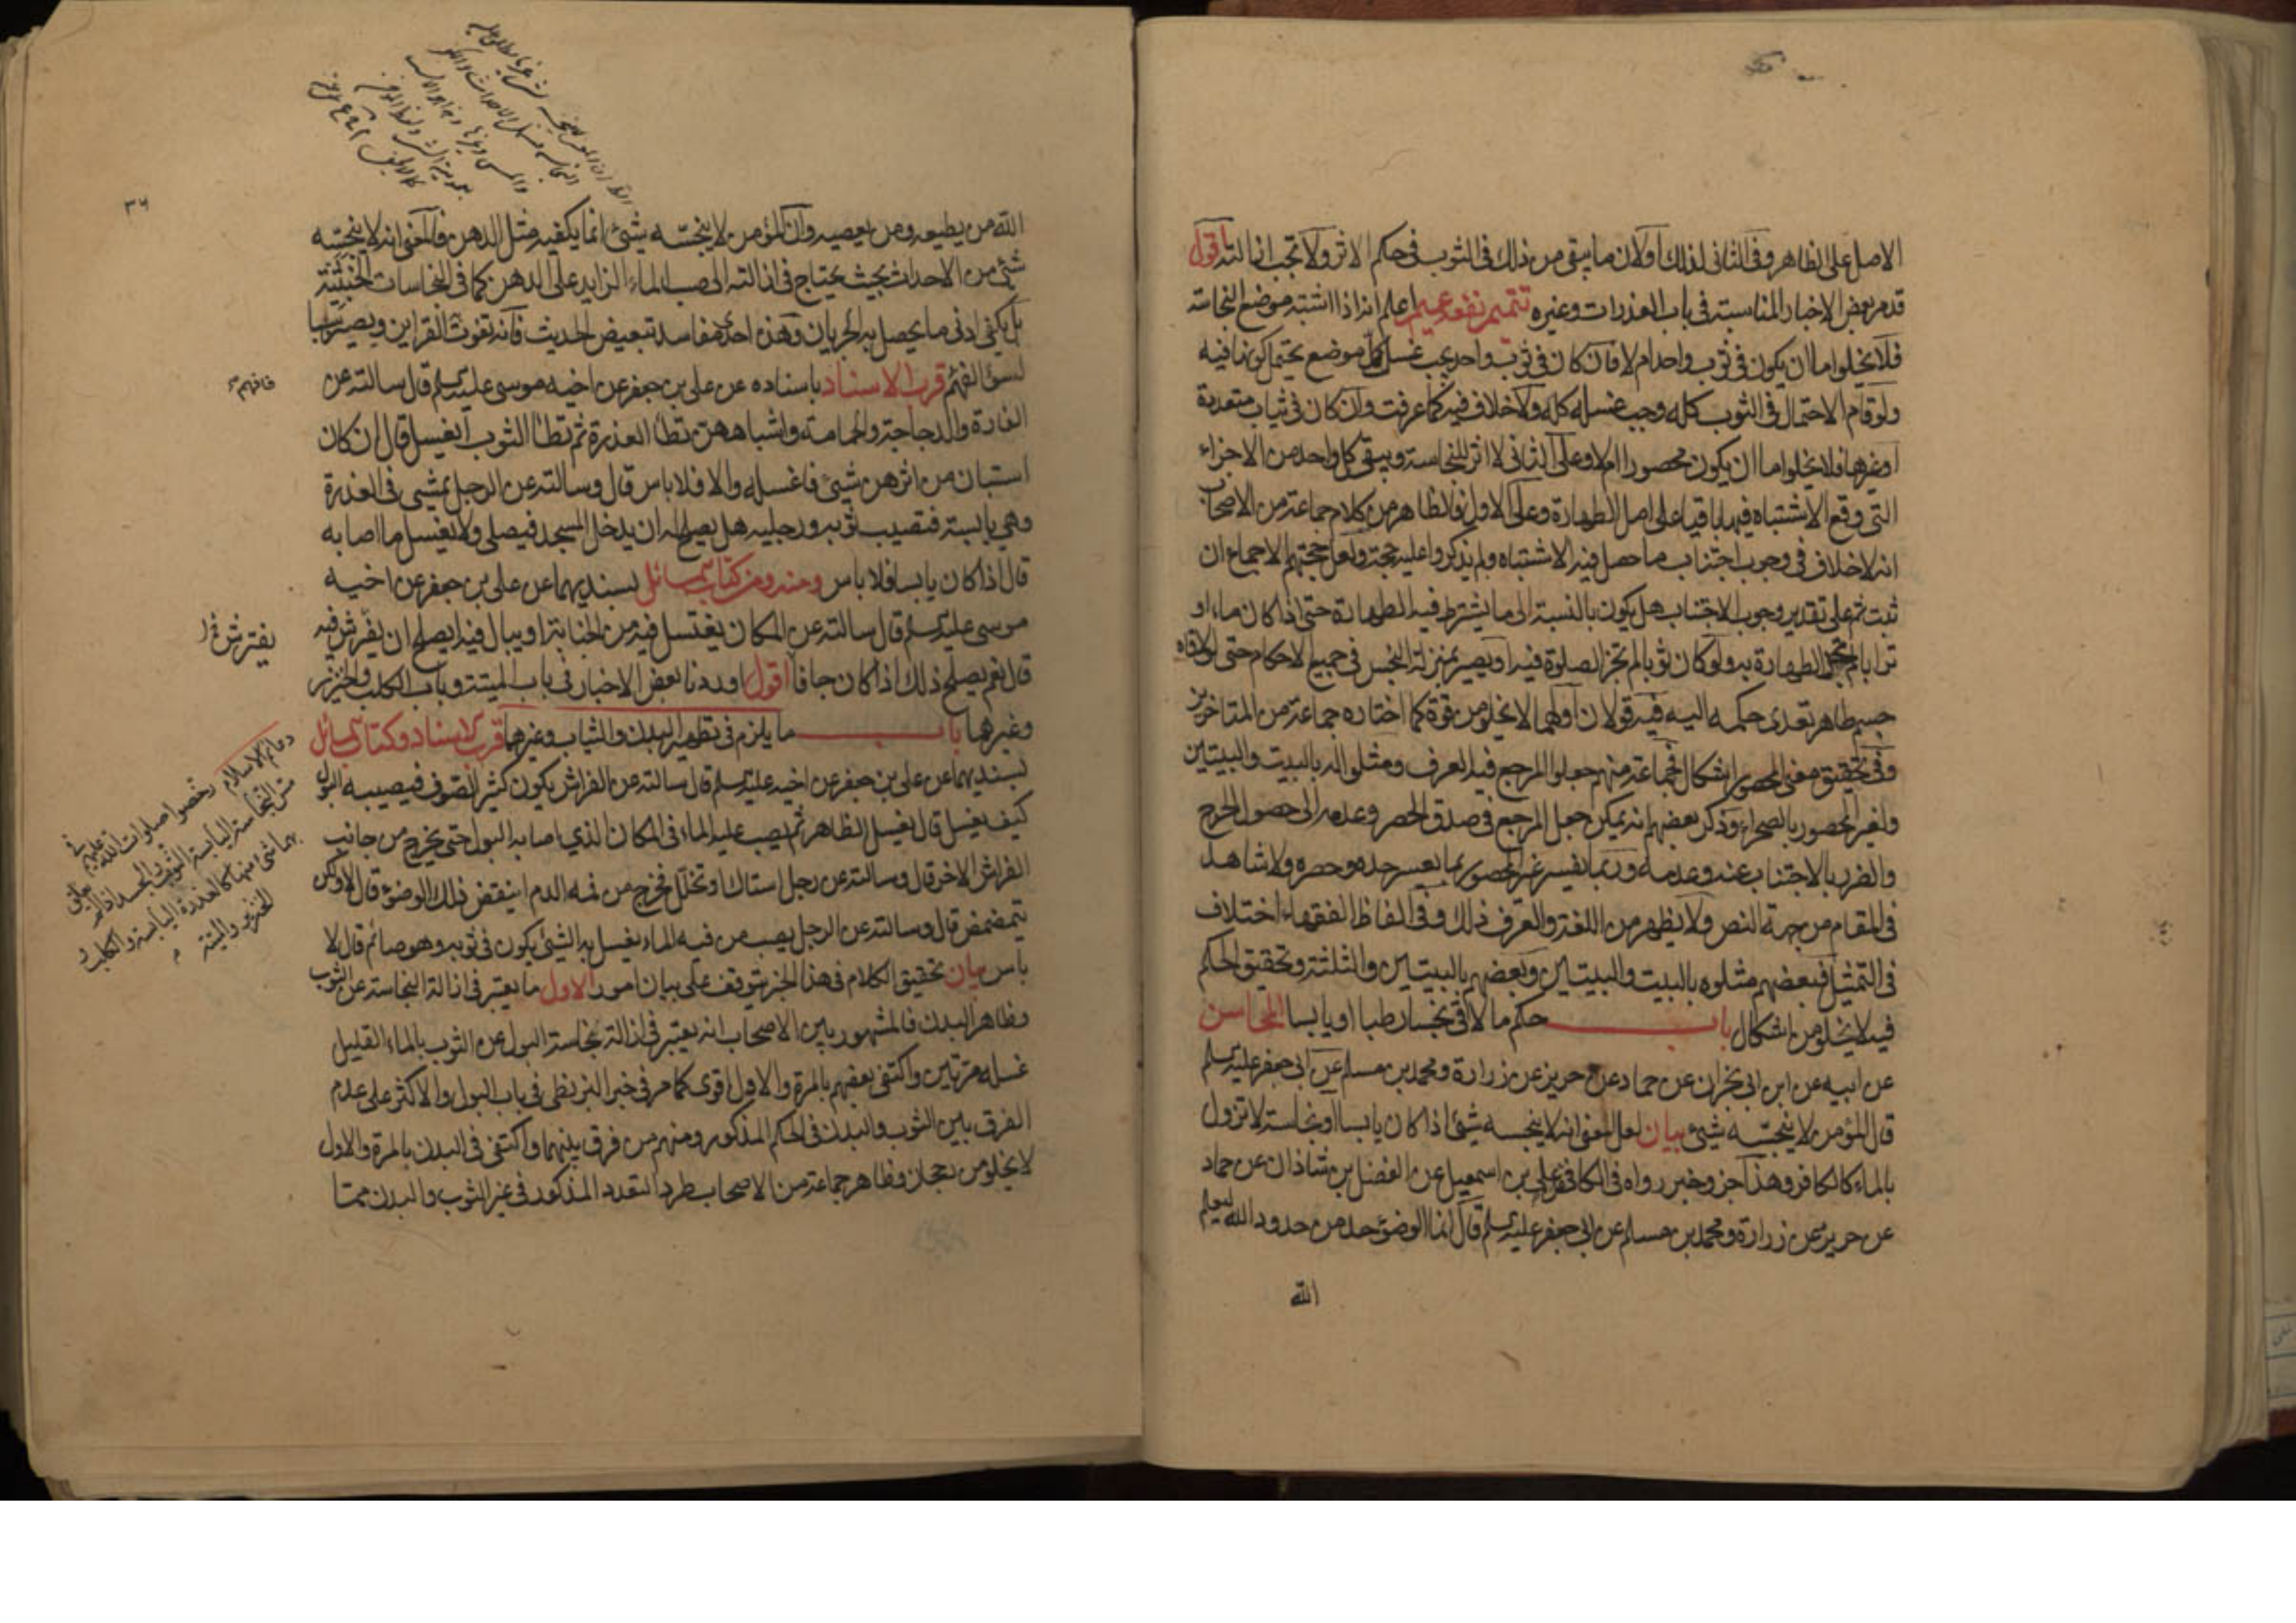 الاصل على الظاهر وفي الثاني لذلك اولان ما يبقى من ذلك في الثوب في حكم الاثر ولا تجب ازالته اقول
قد مر بعض الاخبار المناسبة في باب العذرات وغيره تتميم نفعه عميم اعلم انه اذا اشتبه موضع النجاسة
فلا يخلوا ما ان يكون في ثوب واحد ام لا فان كان في ثوب واحد يجب غسل كل موضع يحتمل كونها فيه
ولو قام الاحتمال في الثوب كله وجب غسله كله ولا خلاف فيه كما عرفت وان كان في ثياب متعددة
او غيرها فلا يخلوا ما ان يكون محصورا ام لا وعلى الثاني لا اثر للنجاسة ويبقى كل واحد من الاجزاء
التي وقع الاشتباه فيها باقيا على اصل الطهارة وعلى الاول فالظاهر من كلام جماعة من الاصحاب
انه لا خلاف في وجوب اجتناب ما حصل فيه الاشتباه ولم يذكروا عليه حجة ولعل حجتهم الاجماع ان
ثبت ثم على تقدير وجوب الاجتناب هل يكون بالنسبة الى ما يشترط فيه الطهارة حتى اذا كان ماء او
ترابا لم تجز الطهارة به ولو كان ثوبا لم تجز الصلوة فيه او يصير بمنزلة النجس في جميع الاحكام حتى لو لاقاه
جسم طاهر تعدى حكمه اليه فيه قولان اولهما لا يخلو من قوة كما اختاره جماعة من المتاخرين
وفي تحقيق معنى المحصور اشكال فجماعة منهم جعلوا المرجع فيه العرف ومثلوا له بالبيت والبيتين
ولغير المحصور بالصحراء وذكر بعضهم انه يمكن جعل المرجع في صدق الحصر وعدمه الى حصول الحرج
والضرر بالاجتناب عنه وعدمه وربما يفسر غير المحصور بما يعسر حده وحصره ولا شاهد
في المقام من جهة النص ولا يظهر من اللغة والعرف ذلك وفي الفاظ الفقهاء اختلاف
في التمثيل فبعضهم مثلوه بالبيت والبيتين وبعضهم بالبيتين والثلثة وتحقيق الحكم
فيه لا يخلو من اشكال باب حكم ما لاقى نجسا رطبا او يابسا المحاسن
عن ابيه عن ابن ابي نجران عن حماد عن حريز عن زرارة ومحمد بن مسلم عن ابي جعفر عليه السلم
قال المؤمن لا ينجسه شيئ بيان لعل المعنى انه لا ينجسه شيئ اذا كان يابسا او نجاسة لا تزول
بالماء كالكافر وهذا جزء خبر رواه في الكافي عن علي بن اسمعيل عن الفضل بن شاذان عن حماد
عن حريز عن زرارة ومحمد بن مسلم عن ابي جعفر عليه السلم قال انما الوضوء حد من حدود الله ليعلم
الله
٣٦
الله من يطيعه ومن يعصيه وان المؤمن لا ينجسه شيئ انما يكفيه مثل الدهن فالمعنى انه لا ينجسه
شيئ من الاحداث بحيث يحتاج في ازالته الى صب الماء الزايد على الدهن كما في النجاسات الخبثية
بل يكفي ادنى ما يحصل به الجريان وهذه احدى مفاسد تبعيض الحديث فانه تفوت القراين ويصير سببا
لسوء الفهم قرب الاسناد باسناده عن علي بن جعفر عن اخيه موسى عليه السلم قال سالته عن
الفارة والدجاجة والحمامة واشباههن تطأ العذرة ثم تطأ الثوب ايغسل قال ان كان
استبان من اثرهن شيئ فاغسله والا فلا باس قال وسالته عن الرجل يمشي في العذرة
وهي يابسة فتصيب ثوبه ورجليه هل يصلح له ان يدخل المسجد فيصلي ولا يغسل ما اصابه
قال اذا كان يابسا فلا باس ومنه ومن كتاب المسائل بسنديهما عن علي بن جعفر عن اخيه
موسى عليه السلم قال سالته عن المكان يغتسل فيه من الجنابة او يبال فيه ايصلح ان يفرش فيه
يفترش
قال نعم يصلح ذلك اذا كان جافا اقول اوردنا بعض الاخبار في باب الميتة وباب الكلب والخنزير
وغيرها باب ما يلزم في تطهير البدن والثياب وغيرها قرب الاسناد وكتاب المسائل
بسنديهما عن علي بن جعفر عن اخيه عليه السلم قال سالته عن الفراش يكون كثير الصوف فيصيبه البول
كيف يغسل قال يغسل الظاهر ثم يصب عليه الماء في المكان الذي اصابه البول حتى يخرج من جانب
الفراش الاخر قال وسالته عن رجل استاك او تخلل فخرج من فمه الدم اينقض ذلك الوضوء قال لا ولكن
يتمضمض قال وسالته عن الرجل يصب من فيه الماء يغسل به الشيئ يكون في ثوبه وهو صائم قال لا
باس بيان تحقيق الكلام في هذا الخبر يتوقف على بيان امور الاول ما يعتبر في ازالة النجاسة عن الثوب
وظاهر البدن فالمشهور بين الاصحاب انه يعتبر في ازالة نجاسة البول عن الثوب بالماء القليل
غسله مرتين واكتفى بعضهم بالمرة والاول اقوى كما مر في خبر البزنطي في باب البول والاكثر على عدم
الفرق بين الثوب والبدن في الحكم المذكور ومنهم من فرق بينهما واكتفى في البدن بالمرة والاول
لا يخلو من رجحان وظاهر جماعة من الاصحاب طرد التعدد المذكور في غير الثوب والبدن مما
دعائم الاسلام رخصوا صلوات الله عليهم في
مس النجاسة اليابسة الثوب والجسد اذا لم يعلق
بهما شيئ منها كالعذرة اليابسة والكلب و
الخنزير والميتة